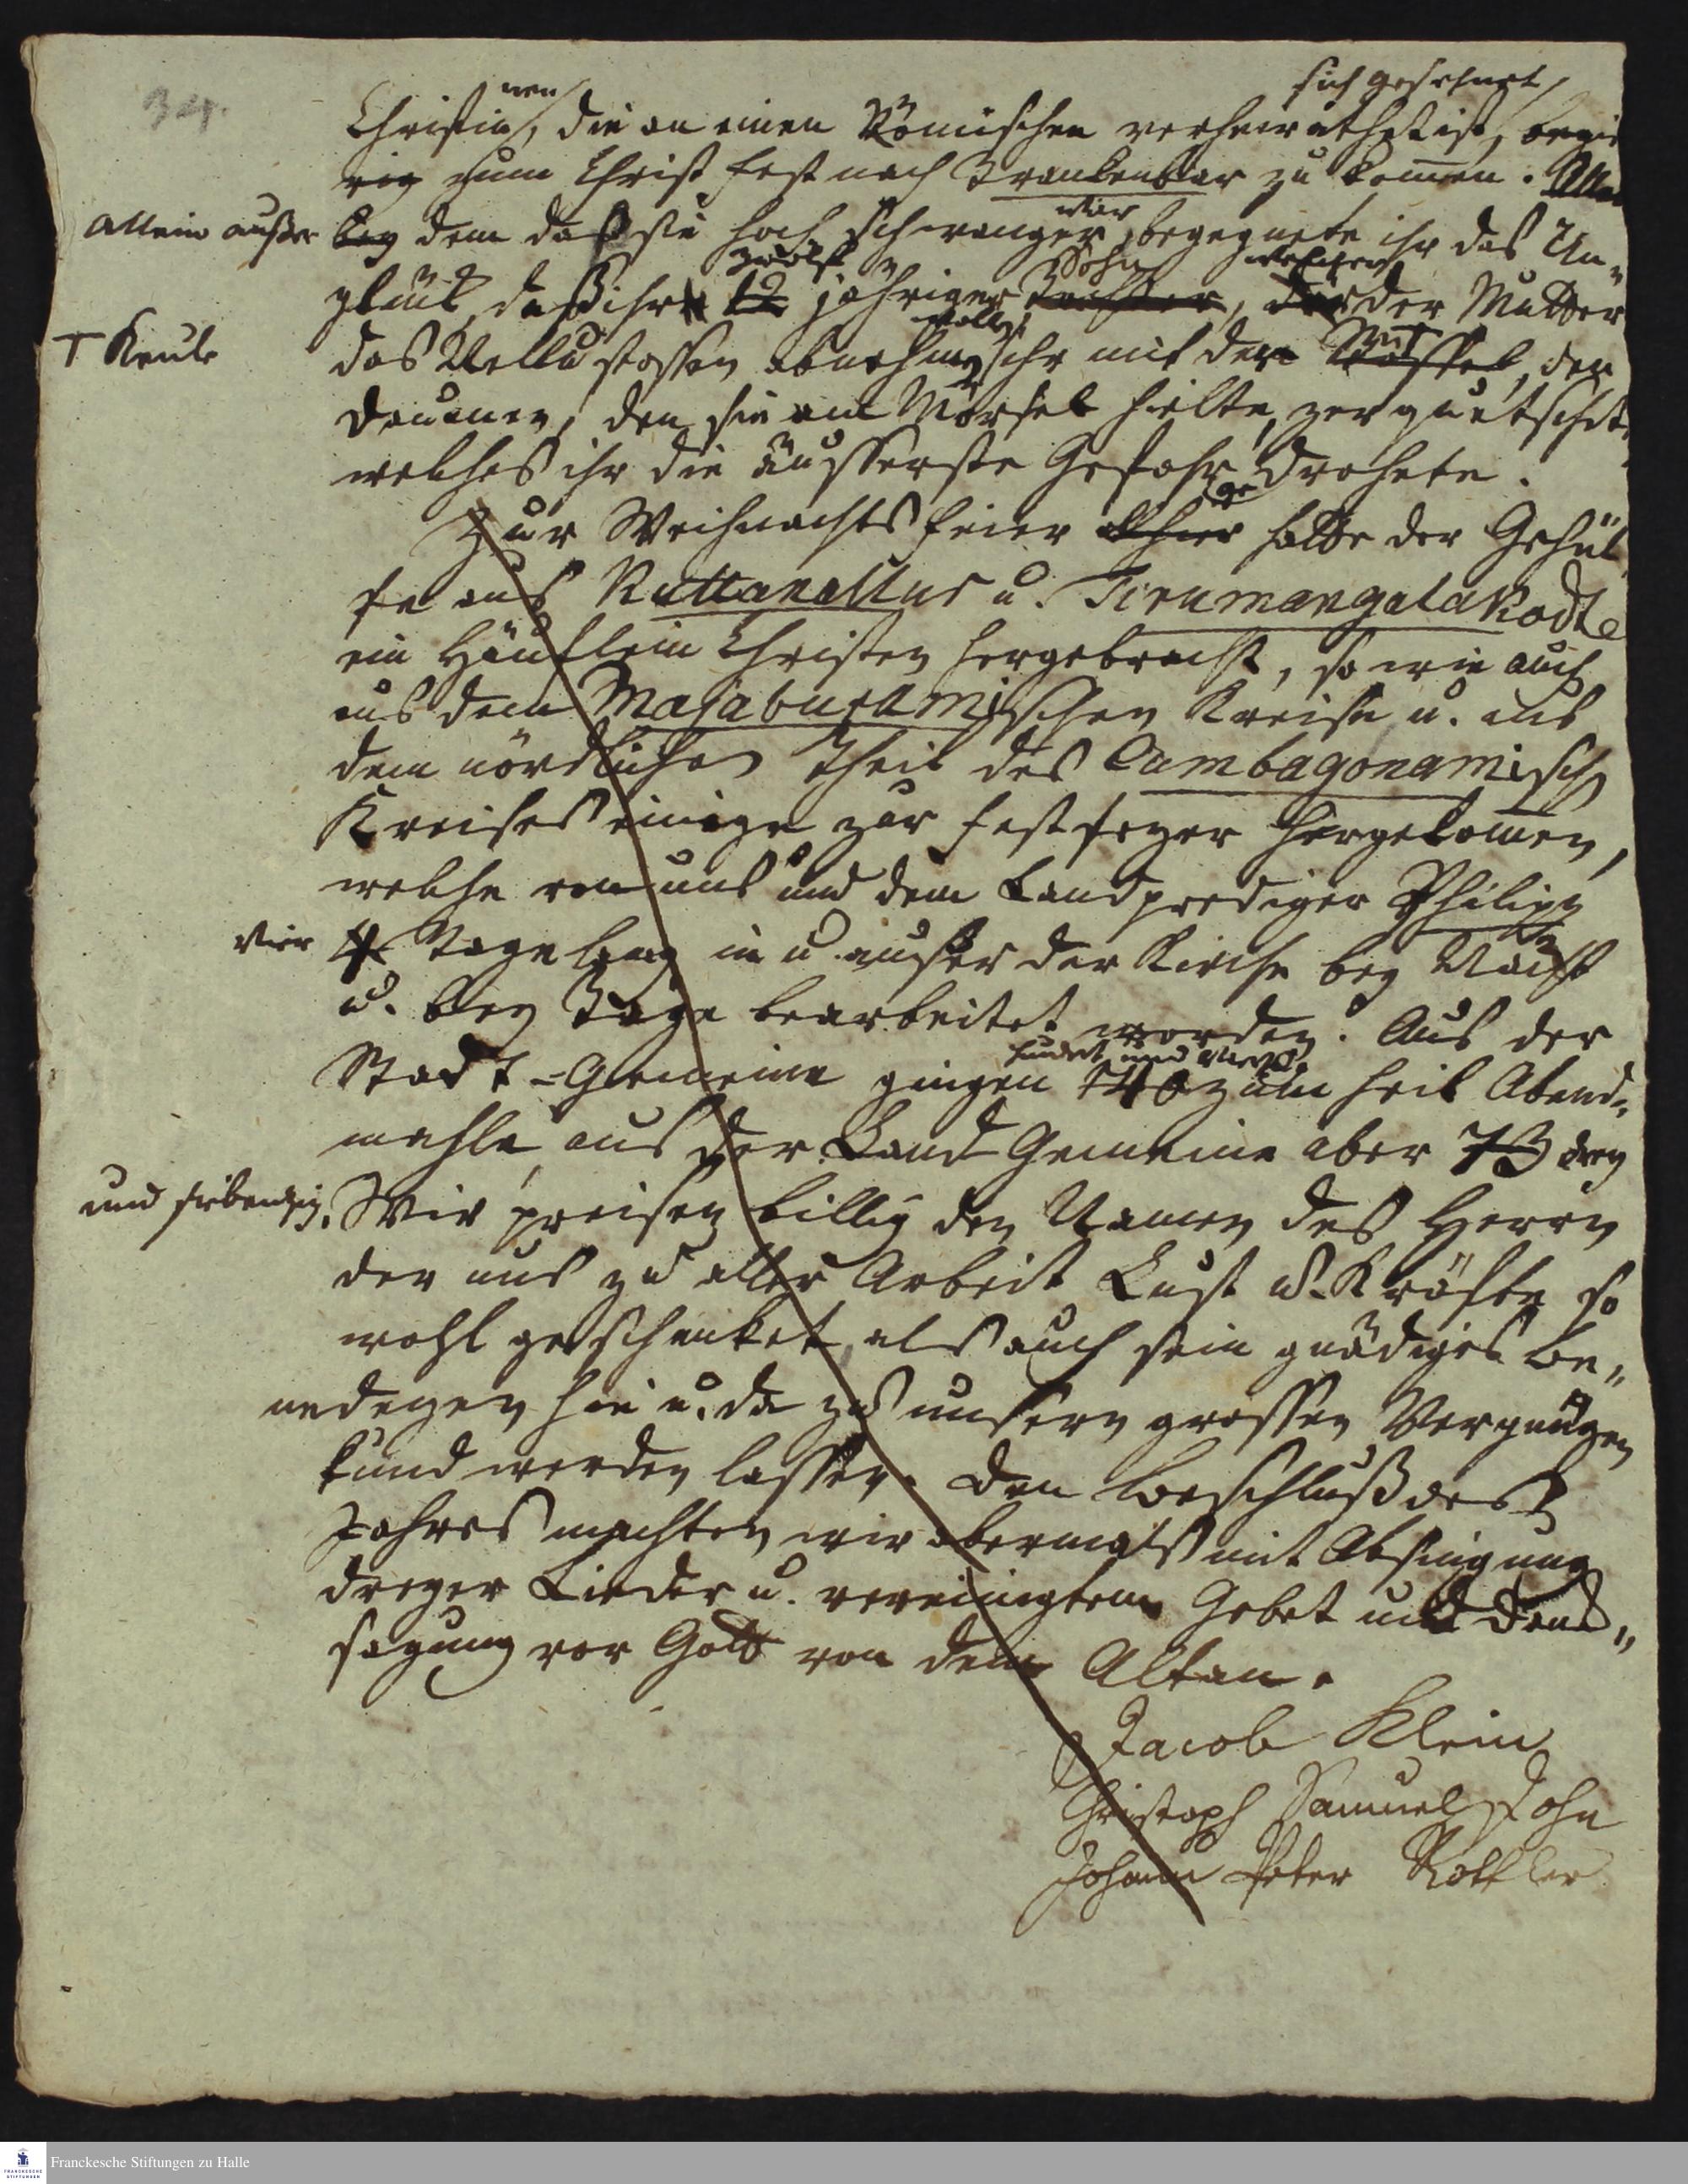 34.
nen sich gesehnet,
Christin, die an einen Römischen verheirathet ist, begie
rig zum Christ fest nach Trankenbar zu komen. Allein
Allein außer bey dem daß sie hoch schwanger war, begegnete ihr das Un-
glück, daß ihr 12 zwölf jähriger Tochter Sohn, der welcher der Mutter
T Keule das Nellu stossen abnehmen wollte, ihr mit der T den
Daumen, den sie am Mörsel hielte, zerquetschte,
welches ihr die äusserste Gefahr drohete.
Zur Weihnachtsfeier alhier hatte der Gehül
fe aus Kuttanallur u. Tirumangalakodte
ein Häuflein Christen hergebracht, so wie auch
aus dem Majaburamischen Kreise u. aus
dem nördlichen Theil des Cumbagonamisch
Kreises einige zur festfeyer hergekomen,
welche von uns und dem Landprediger Philipp
vier 4 Tage lang in u. ausser der Kirche bey Nacht
u. bey Tage bearbeitet worden. Aus der
hundert und vierzig
Stadt-Gemeine gingen 140 zum heil Abend-
mahle, aus der Land Gemeine aber 73 drey
und siebenzig. Wir preisen billig den Namen des Herrn
der uns zu aller Arbeit Lust u. Kräfte so
wohl geschenket, als auch sein gnädiges Be-
kund werden lassen. Den Beschluß des
Jahres machten wir abermals mit Absingung
dreyer Lieder u. vereinigtem Gebet und Dank-
sagung vor Gott von dem Altan.
Jacob Klein
Christoph Samuel John
Johann Peter Rottler
Franckesche Stiftungen zu Halle